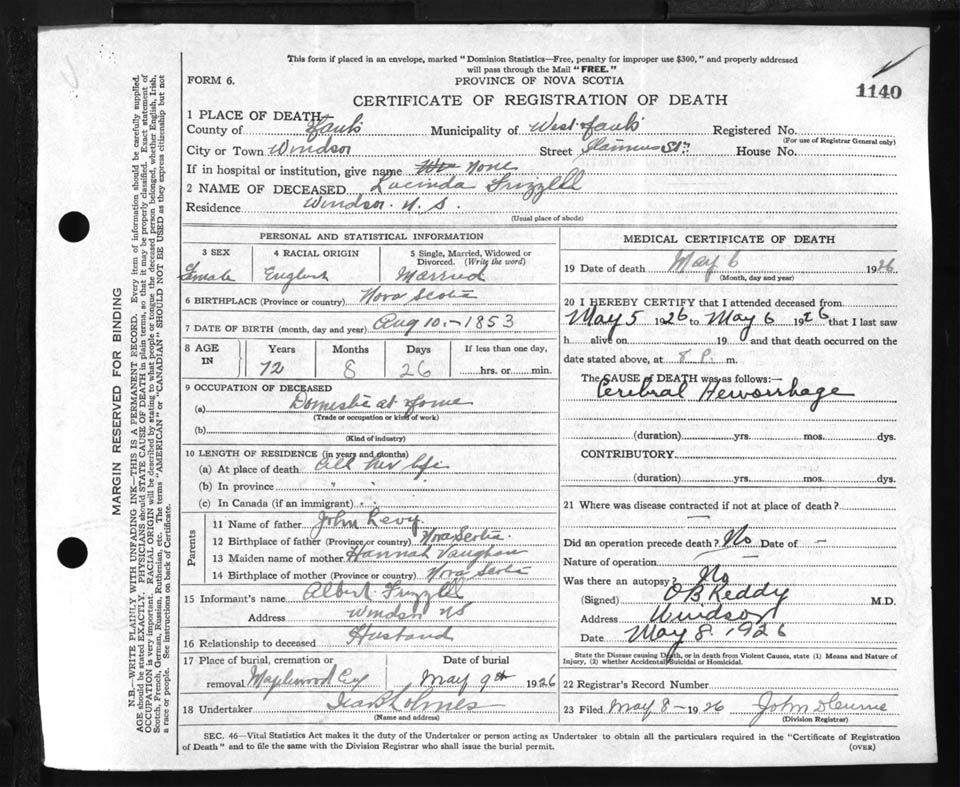 This form if placed in an envelope, marked "Dominion Statistics—Free, penalty for improper use $300," and properly addressed
will pass through the Mail "FREE."
FORM 6. PROVINCE OF NOVA SCOTIA
1140
CERTIFICATE OF REGISTRATION OF DEATH
1 PLACE OF DEATH—
County of Hants Municipality of West Hants Registered No.
(For use of Registrar General only)
City or Town Windsor Street St. House No.
If in hospital or institution, give name None
2 NAME OF DECEASED Lucinda Frizzell
Residence Windsor N. S.
(Usual place of abode)
PERSONAL AND STATISTICAL INFORMATION
3 SEX 4 RACIAL ORIGIN 5 Single, Married, Widowed or
Divorced. (Write the word)
Female English Married
6 BIRTHPLACE (Province or country) Nova Scotia
7 DATE OF BIRTH (month, day and year) Aug 10.-1853
8 AGE IN Years Months Days If less than one day,
72 8 26 hrs. or min.
9 OCCUPATION OF DECEASED
(a) Domestic at Home
(Trade or occupation or kind of work)
(b)
(Kind of industry)
10 LENGTH OF RESIDENCE (in years and months)
(a) At place of death All her life
(b) In province " "
(c) In Canada (if an immigrant) " "
Parents
11 Name of father John Levy
12 Birthplace of father (Province or country) Nova Scotia
13 Maiden name of mother Hannah Vaughan
14 Birthplace of mother (Province or country) Nova Scotia
15 Informant's name Albert Frizzell
Address Windsor NS
16 Relationship to deceased Husband
17 Place of burial, cremation or Date of burial
removal Maplewood Cey May 9th 1926
18 Undertaker Holmes
(Name and address)
MEDICAL CERTIFICATE OF DEATH
19 Date of death May 6 1926
(Month, day and year)
20 I HEREBY CERTIFY that I attended deceased from
May 5 1926 to May 6 1926 that I last saw
h alive on 19 and that death occurred on the
date stated above, at 8 P. m.
The CAUSE of DEATH was as follows:—
Cerebral Hemorrhage
(duration) yrs. mos. dys.
CONTRIBUTORY
(duration) yrs. mos. dys.
21 Where was disease contracted if not at place of death?
—
Did an operation precede death? No Date of —
Nature of operation
Was there an autopsy? No
(Signed) O B Keddy M.D.
Address Windsor
Date May 8. 1926
State the Disease causing Death, or in death from Violent Causes, state (1) Means and Nature of
Injury, (2) whether Accidental, Suicidal or Homicidal.
22 Registrar's Record Number
23 Filed May 8- 1926 John
(Division Registrar)
SEC. 46—Vital Statistics Act makes it the duty of the Undertaker or person acting as Undertaker to obtain all the particulars required in the "Certificate of Registration
of Death" and to file the same with the Division Registrar who shall issue the burial permit. (OVER)
MARGIN RESERVED FOR BINDING
N.B.—WRITE PLAINLY WITH UNFADING INK—THIS IS A PERMANENT RECORD. Every item of information should be carefully supplied.
AGE should be stated EXACTLY. PHYSICIANS should STATE CAUSE OF DEATH in plain terms, so that it may be properly classified. Exact statement of
OCCUPATION is very important. RACIAL ORIGIN will be described by stating to what people or tongue the deceased person belonged, whether English, Irish,
Scotch, French, German, Russian, Ruthenian, etc. The terms "AMERICAN" or "CANADIAN" SHOULD NOT BE USED as they express citizenship but not
a race or people. See instructions on back of Certificate.